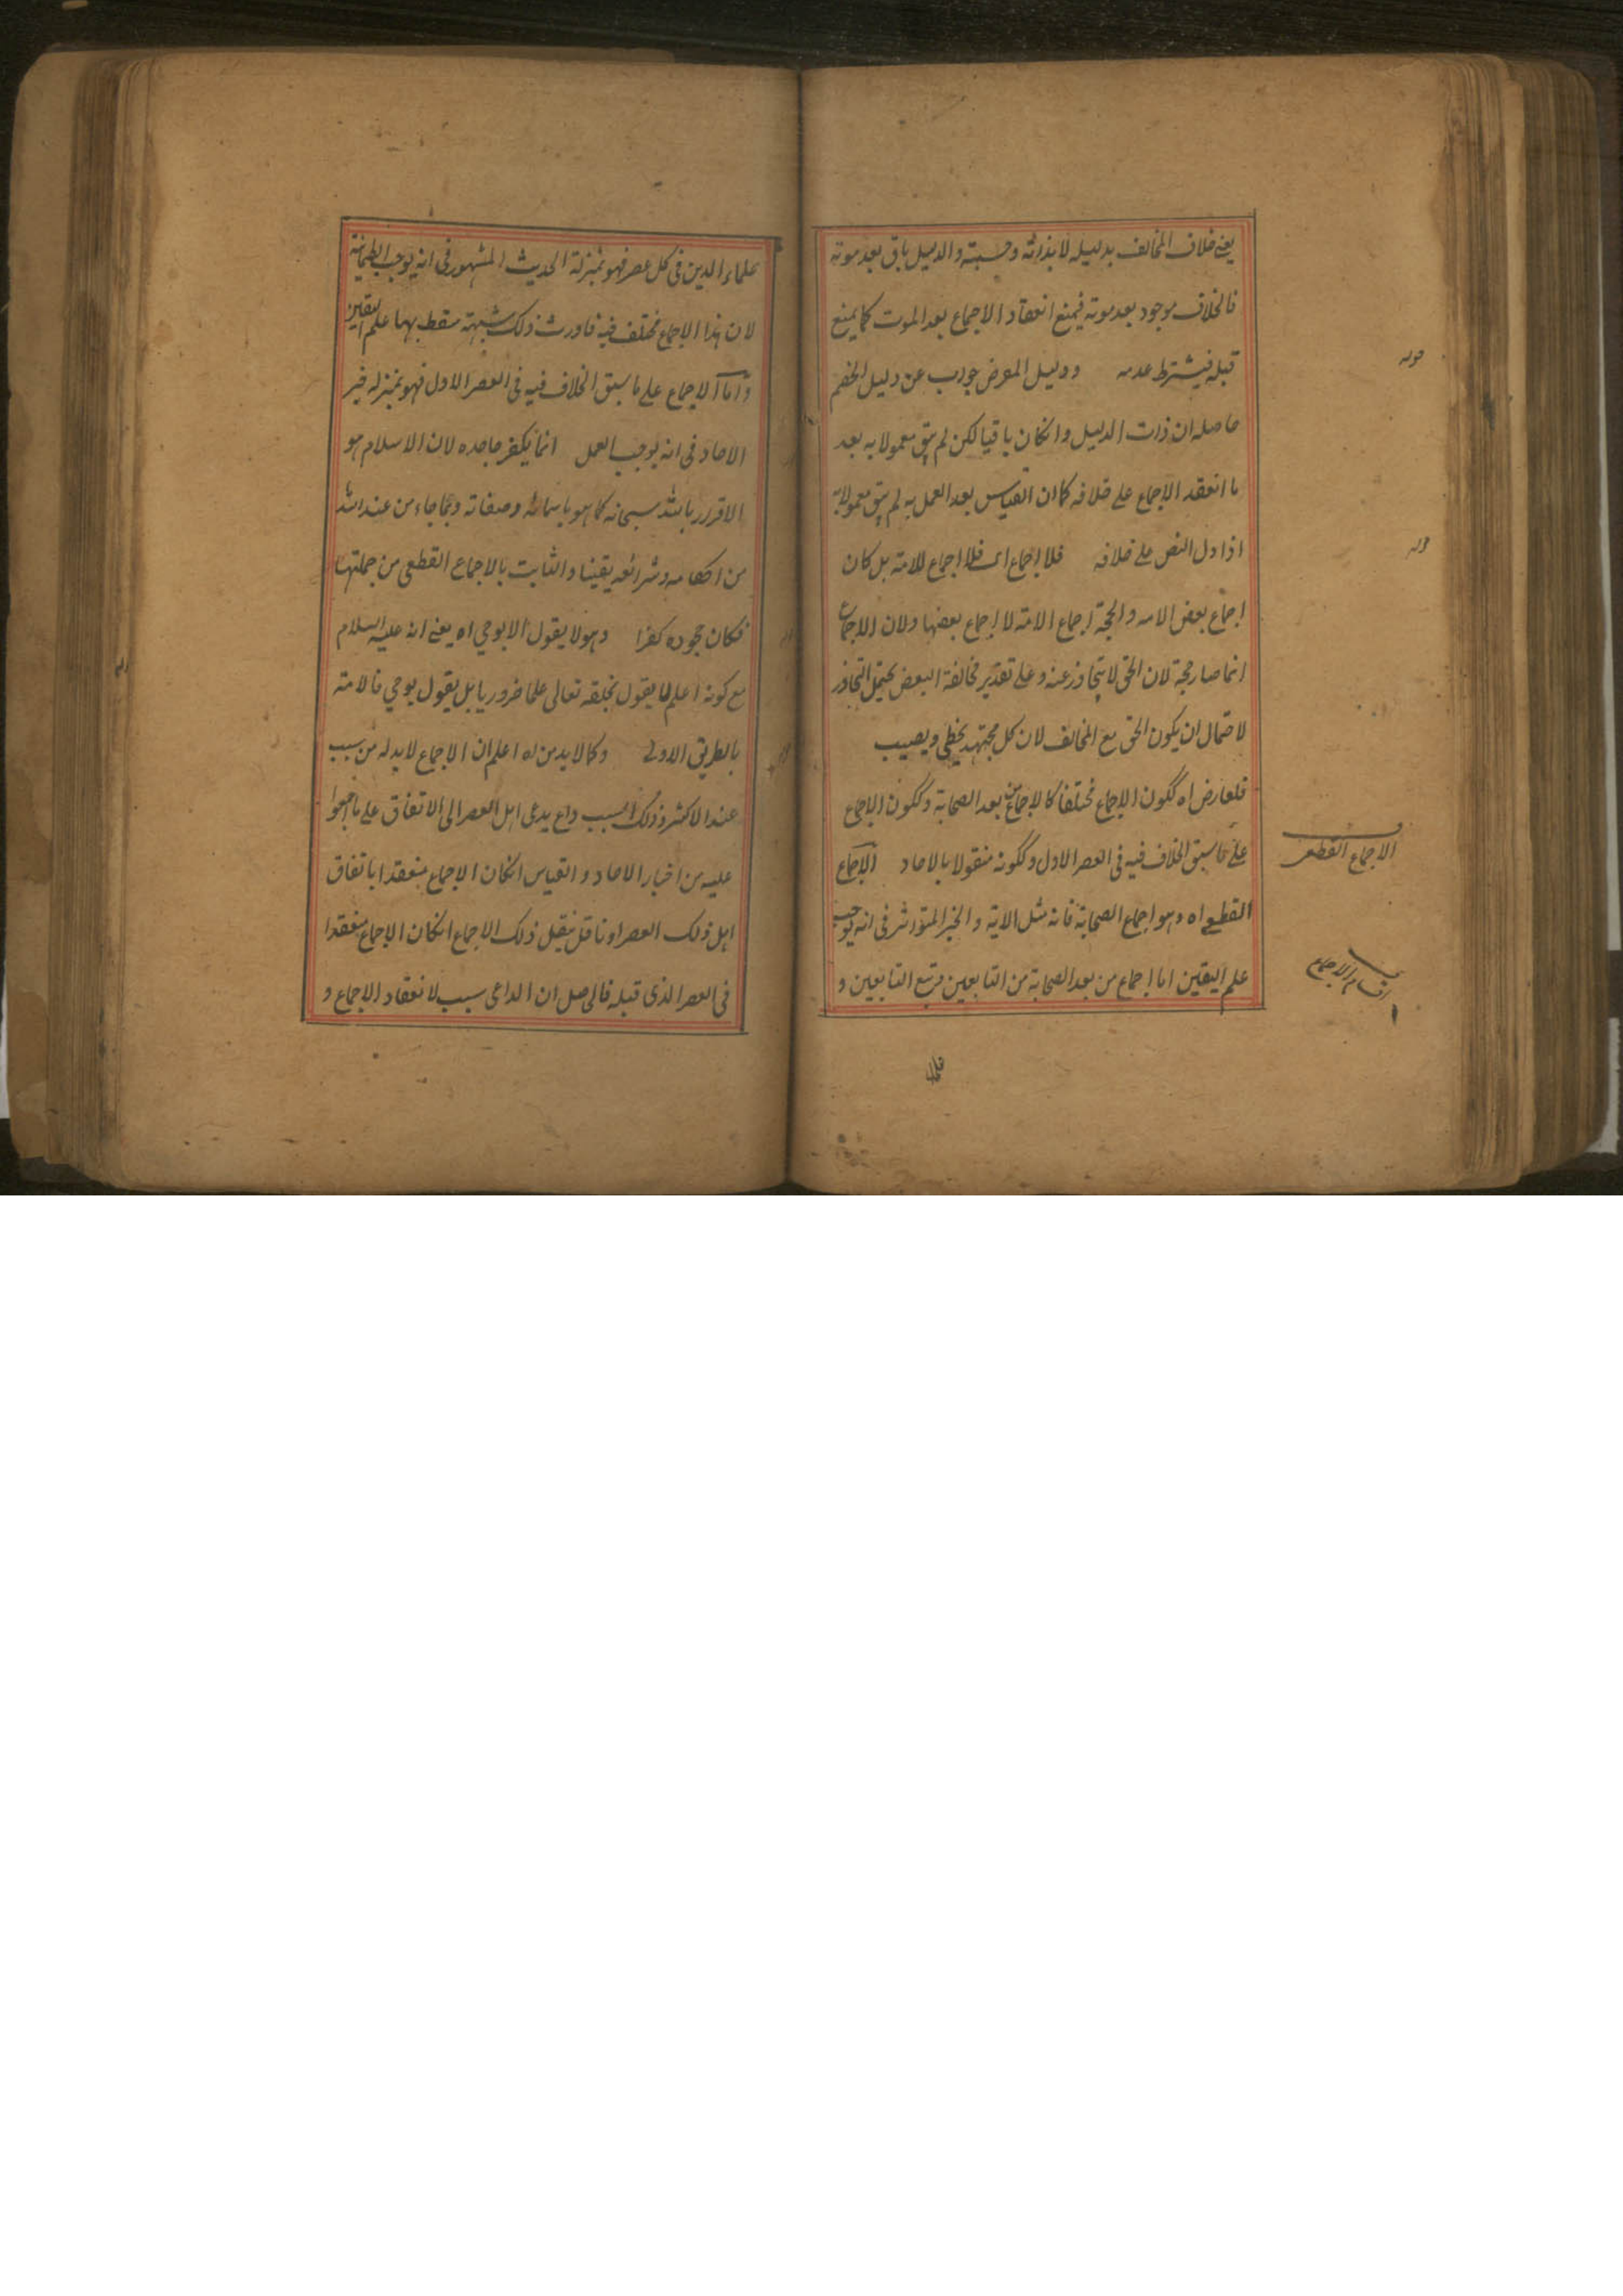 يعني خلاف المخالف بدليله لا بذاته وحسبته والدليل باق بعد موته
فالخلاف موجود بعد موته فيمنع انعقاد الاجماع بعد الموت كما يمنع
قبله فيشترط عدمه ودليل المعرض جواب عن دليل الخصم
حاصله ان ذات الدليل وانكان باقيا لكن لم يبق معمولا به بعد
ما انعقد الاجماع على خلافه كما ان القياس بعد العمل به لم يبق معمولا به
اذا دل النص على خلافه فلا اجماع اى فلا اجماع للامة بل كان
اجماع بعض الامه والحجة اجماع الامة لا اجماع بعضها ولان الاجماع
انما صار حجة لان الحق لا يتجاوز عنه وعلى تقدير مخالفة البعض يحتمل التجاوز
لاحتمال ان يكون الحق مع المخالف لان كل مجتهد يخطى ويصيب
فلعارض اه ككون الاجماع مختلفا كالاجماع من بعد الصحابة وككون الاجماع
على ما سبق الخلاف فيه فى العصر الاول وككونه منقولا بالاحاد الاجماع
القطعى اه وهو اجماع الصحابة فانه مثل الاية والخبر المتواتر فى انه يوجب
علم اليقين اما اجماع من بعد الصحابة من التابعين وتبع التابعين و
قوله
قوله
الاجماع القطعى
اقسام الاجماع
علماء الدين فى كل عصر فهو بمنزلة الحديث المشهور فى انه يوجب الطمانية
لان هذا الاجماع مختلف فيه فاورث ذلك شبهة سقط بها علم اليقين
واما الاجماع على ما سبق الخلاف فيه فى العصر الاول فهو بمنزله خبر
الاحاد فى انه يوجب العمل انما يكفر جاحده لان الاسلام هو
الاقرار بالله سبحانه كما هو باسمائه وصفاته وبما جاء من عند الله
من احكامه وشرائعه يقينا والثابت بالاجماع القطعى من جملتها
فكان جحوده كفرا وهو لا يقول الا بوحي اه يعني انه عليه السلام
مع كونه اعلم لما يقول بخلقه تعالى علما ضروريا بل يقول بوحي فالامة
بالطريق الاولى وكما لا بد من اه اعلم ان الاجماع لا بد له من سبب
عند الاكثر وذلك السبب داع يدعى اهل العصر الى الاتفاق على ما اجمعوا
عليه من اخبار الاحاد والقياس انكان الاجماع منعقدا باتفاق
اهل ذلك العصر او ناقل ينقل ذلك الاجماع انكان الاجماع منعقدا
فى العصر الذى قبله فالحاصل ان الداعى سبب لانعقاد الاجماع و